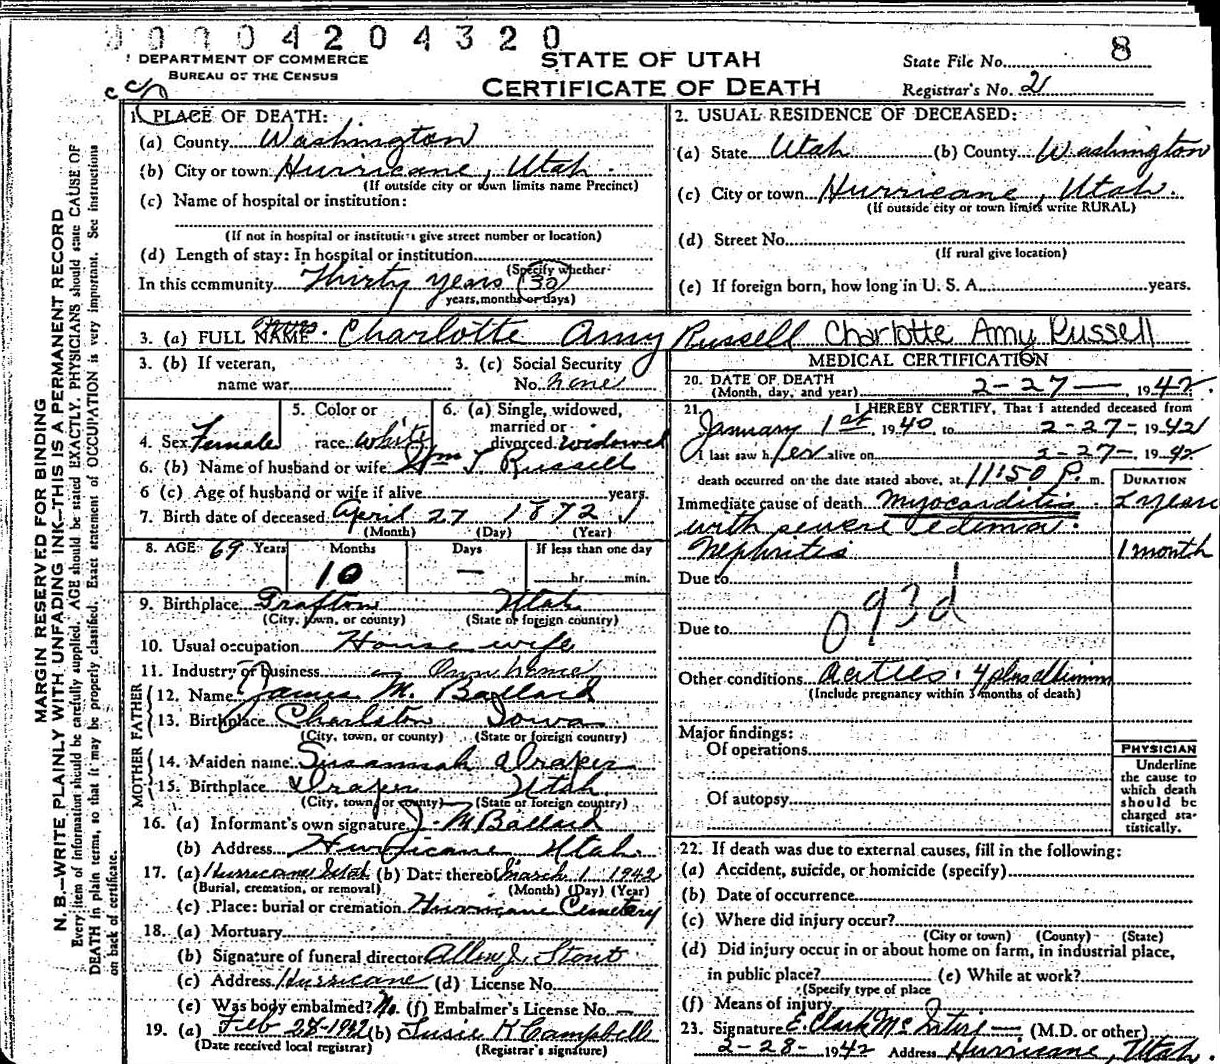 0 0 0 0 4 2 0 4 3 2 0
DEPARTMENT OF COMMERCE
BUREAU OF THE CENSUS
STATE OF UTAH
CERTIFICATE OF DEATH
State File No. 8
Registrar's No. 21
MARGIN RESERVED FOR BINDING
N. B.—WRITE PLAINLY WITH UNFADING INK—THIS IS A PERMANENT RECORD
Every item of information should be carefully supplied. AGE should be stated EXACTLY. PHYSICIANS should state CAUSE OF
DEATH in plain terms, so that it may be properly classified. Exact statement of OCCUPATION is very important. See instructions
on back of certificate.
1. PLACE OF DEATH:
(a) County Washington
(b) City or town Hurricane, Utah.
(If outside city or town limits name Precinct)
(c) Name of hospital or institution:
(If not in hospital or institution give street number or location)
(d) Length of stay: In hospital or institution
(Specify whether
In this community Thirty years (30)
years, months or days)
2. USUAL RESIDENCE OF DECEASED:
(a) State Utah (b) County Washington
(c) City or town Hurricane, Utah.
(If outside city or town limits write RURAL)
(d) Street No.
(If rural give location)
(e) If foreign born, how long in U. S. A. years.
3. (a) FULL NAME Mrs. Charlotte Amy Russell Charlotte Amy Russell
3. (b) If veteran,
name war
3. (c) Social Security
No. none
4. Sex Female
5. Color or
race White
6. (a) Single, widowed,
married or
divorced widowed
6. (b) Name of husband or wife Wm T. Russell
6 (c) Age of husband or wife if alive years.
7. Birth date of deceased April 27 1872
(Month) (Day) (Year)
8. AGE: 69 Years Months Days If less than one day
10 — hr. min.
9. Birthplace Grafton Utah
(City, town, or county) (State or foreign country)
10. Usual occupation House wife
11. Industry or business in Own home
FATHER
12. Name James M. Ballard
13. Birthplace Charlston Iowa
(City, town, or county) (State or foreign country)
MOTHER
14. Maiden name Susannah Draper
15. Birthplace Draper Utah
(City, town or county) (State or foreign country)
16. (a) Informant's own signature J. M Ballard
(b) Address Hurricane Utah.
17. (a) Hurricane Utah (b) Date thereof March 1 1942
(Burial, cremation, or removal) (Month) (Day) (Year)
(c) Place: burial or cremation Hurricane Cemetery
18. (a) Mortuary
(b) Signature of funeral director Allen J. Stout
(c) Address Hurricane (d) License No.
(e) Was body embalmed? No. (f) Embalmer's License No. —
19. (a) Feb 28-1942 (b) Susie K Campbell
(Date received local registrar) (Registrar's signature)
MEDICAL CERTIFICATION
20. DATE OF DEATH
(Month, day, and year) 2-27— , 1942.
21. I HEREBY CERTIFY, That I attended deceased from
January 1st, 1940, to 2-27-, 1942
I last saw her alive on 2-27-, 1942
death occurred on the date stated above, at 11:50 P. m.
DURATION
Immediate cause of death Myocarditis 2 years
with severe edema.
Nephritis 1 month
Due to
093d
Due to
Other conditions 4 plus albumin
(Include pregnancy within 3 months of death)
Major findings:
Of operations
Of autopsy
PHYSICIAN
Underline
the cause to
which death
should be
charged sta-
tistically.
22. If death was due to external causes, fill in the following:
(a) Accident, suicide, or homicide (specify)
(b) Date of occurrence
(c) Where did injury occur?
(City or town) (County) (State)
(d) Did injury occur in or about home on farm, in industrial place,
in public place? (e) While at work?
(Specify type of place
(f) Means of injury
23. Signature E. Clark McIntire — (M.D. or other)
2-28- 1942 Address Hurricane, Utah